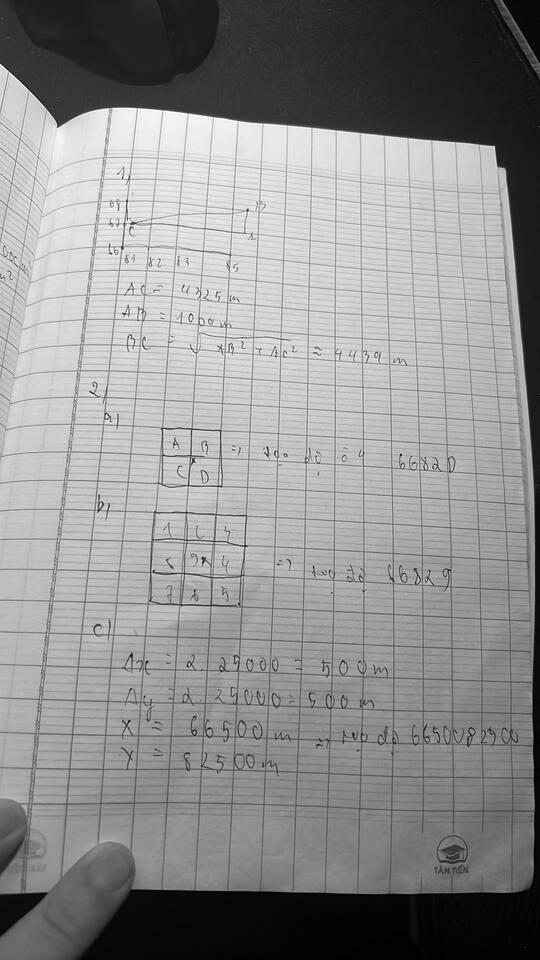 1,
68
67
C
B
A
66
81 82 83 85
AC = 4325 m
AB = 1000 m
BC = √AB² + AC² ≈ 4439 m
2,
a)
A B
C D
=> tọa độ ô 4 6682D
b,
1 2 3
8 9x 4
7 6 5
=> tọa độ 66829
c)
Δx = 2. 25000 = 500 m
Δy = 2. 25000 = 500 m
X = 66500 m
=> tọa độ 6650082500
Y = 82500 m
TÂN TIẾN